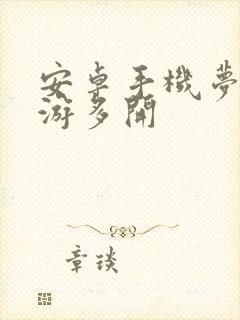 安卓手機夢
游多開
章琰